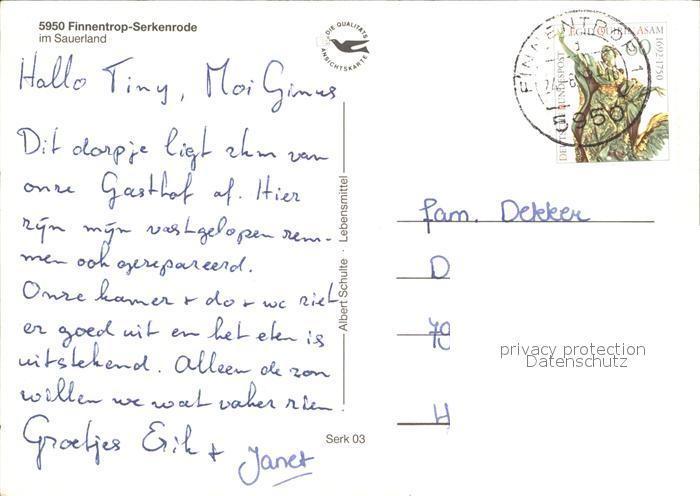 5950 Finnentrop-Serkenrode
im Sauerland
DIE QUALITÄTS
ANSICHTSKARTE
Hallo Tiny, Moi Ginus
Dit dorpje ligt 2km van
onze Gasthof af. Hier
zijn mijn vastgelopen rem-
men ook gerepareerd.
Onze kamer + do + wc ziet
er goed uit en het eten is
uitstekend. Alleen de zon
willen we wat vaker zien.
Groetjes Erik + Janet
Albert Schulte · Lebensmittel
Serk 03
FINNENTROP 1
5950
COSMAS DAMIAN ASAM
60
1692-1750
DEUTSCHE BUNDESPOST
fam. Dekker
D
79
H
privacy protection
Datenschutz